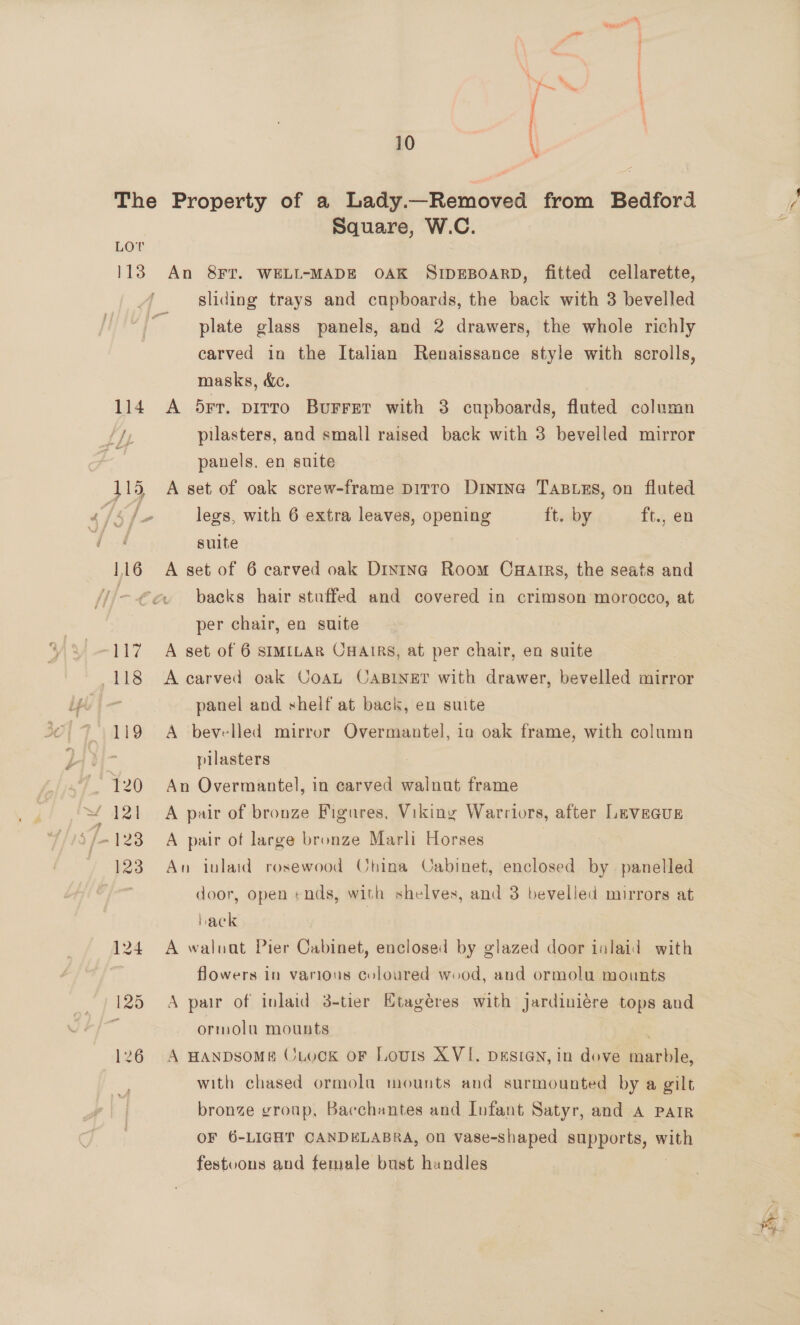 10
The Property of a Lady.—Removed from Bedford
Square, W.C.
LOT
113 An 8FT. WELL-MADE OAK SIDEBOARD, fitted cellarette,
sliding trays and cupboards, the back with 3 bevelled
plate glass panels, and 2 drawers, the whole richly
carved in the Italian Renaissance style with scrolls,
masks, &c.
114 A 5FT. DITTO BUFFET with 3 cupboards, fluted column
pilasters, and small raised back with 3 bevelled mirror
panels, en suite
115 A set of oak screw-frame DITTO DINING TABLES, on fluted
legs, with 6 extra leaves, opening ft. by ft., en
suite
116 A set of 6 carved oak DINING ROOM CHAIRS, the seats and
backs hair stuffed and covered in crimson morocco, at
per chair, en suite
117 A set of 6 SIMILAR CHAIRS, at per chair, en suite
118 A carved oak COAL CABINET with drawer, bevelled mirror
panel and shelf at back, en suite
119 A bevelled mirror Overmantel, in oak frame, with column
pilasters
120 An Overmantel, in carved walnut frame
121 A pair of bronze Figures, Viking Warriors, after LEVEQUE
123 A pair of large bronze Marli Horses
123 An inlaid rosewood China Cabinet, enclosed by panelled
door, open ends, with shelves, and 3 bevelled mirrors at
back
124 A walnut Pier Cabinet, enclosed by glazed door inlaid with
flowers in various coloured wood, and ormolu mounts
125 A pair of inlaid 3-tier Etagéres with jardiniére tops and
ormolu mounts
126 A HANDSOME CLOCK OF LOUIS XVI. DESIGN, in dove marble,
with chased ormolu mounts and surmounted by a gilt
bronze group, Bacchantes and Infant Satyr, and A PAIR
OF 6-LIGHT CANDELABRA, on vase-shaped supports, with
festoons and female bust handles